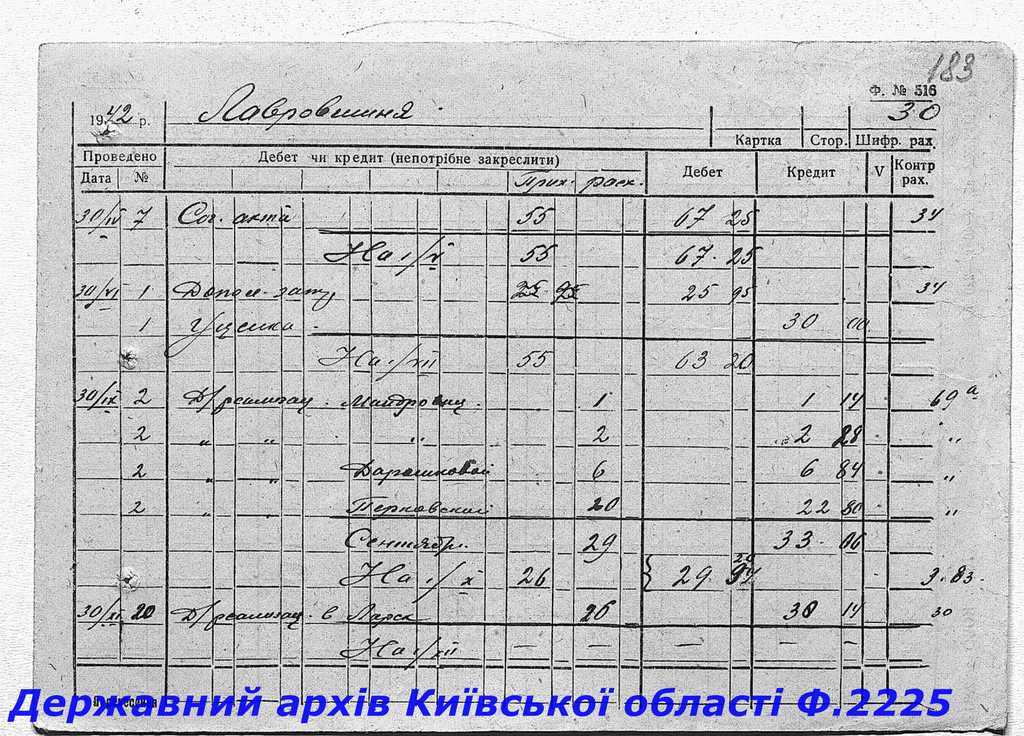 183
Ф. № 516
1942 р. Лавровишня 30
Картка Стор. Шифр. рах.
Проведено Дебет чи кредит (непотрібне закреслити) Дебет Кредит V Контр рах.
Дата № Прих. расх.
30/IV 7 Сог. акта 55 67 25 34
На 1/V 55 67. 25
30/VI 1 25 95 34
1 Уценка 30 00
На 1/VII 55 63 20
30/IX 2 Д/реализац. 1 1 14 69а
2 " " " 2 2 28 "
2 " " Дарашковой 6 6 84 "
2 " " Перковский 20 22 80 "
Сентябр. 29 33. 06
На 1/X 26 29. 3.83.
30/XI 20 Д/реализац. в Ларек 26 30 14 30
На 1/XII — — — —
Державний архів Київської області Ф.2225